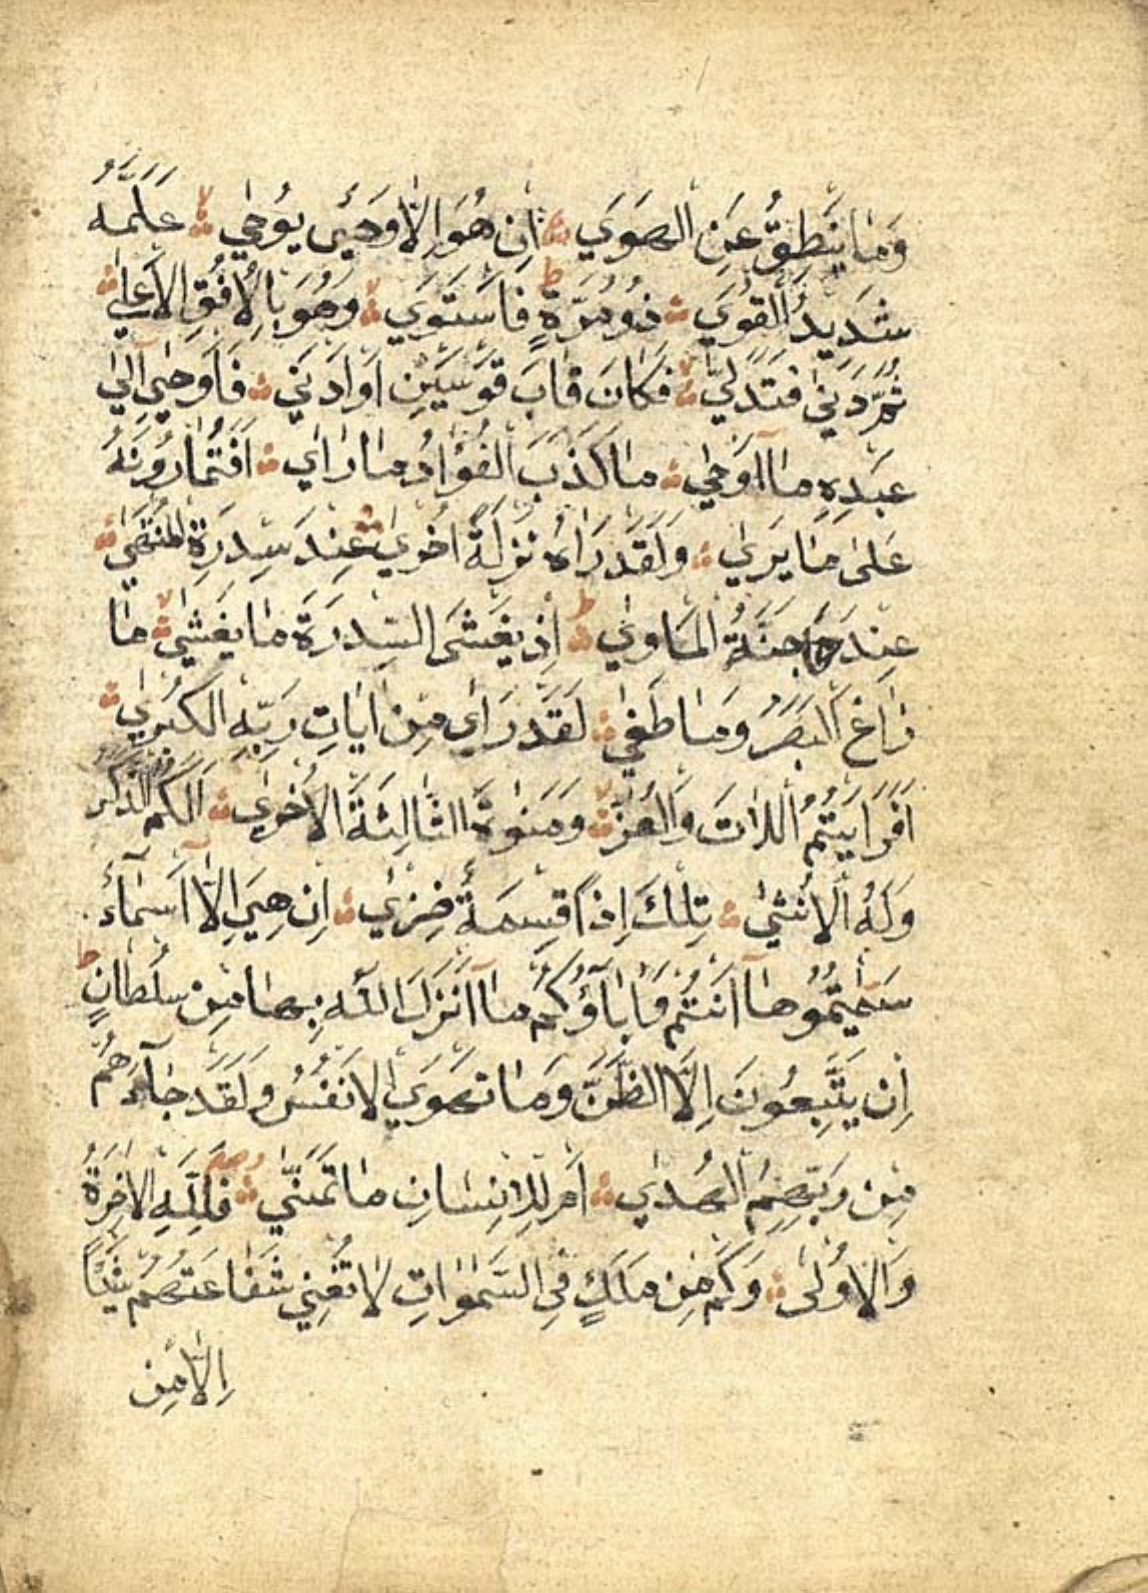 وَمَا يَنْطِقُ عَنِ الهَوَي اِنْ هُوَ اِلَّا وَحْيٌ يُوحٰي عَلَّمَهُ
شَدِيدُ القُوَي ذُو مِرَّةٍ ط فَاسْتَوَي وَهُوَ بِالْاُفُقِ الْاَعْلٰي
ثُمَّ دَنٰي فَتَدَلّٰي فَكَانَ قَابَ قَوْسَيْنِ اَوْ اَدْنٰي فَاَوْحٰي اِلٰي
عَبْدِهِ مَا اَوْحٰي مَا كَذَبَ الْفُؤَادُ مَا رَاٰي اَفَتُمَارُونَهُ
عَلٰى مَا يَرٰي وَلَقَدْ رَاٰهُ نَزْلَةً اُخْرٰي عِنْدَ سِدْرَةِ الْمُنْتَهٰي
عِنْدَهَا جَنَّةُ الْمَاْوٰي ط اِذْ يَغْشَى السِّدْرَةَ مَا يَغْشٰي مَا
زَاغَ الْبَصَرُ وَمَا طَغٰي لَقَدْ رَاٰى مِنْ اٰيَاتِ رَبِّهِ الْكُبْرٰي
اَفَرَاَيْتُمُ اللَّاتَ وَالْعُزّٰ وَمَنٰوةَ الثَّالِثَةَ الْاُخْرٰي اَلَكُمُ الذَّكَرُ
وَلَهُ الْاُنْثٰي تِلْكَ اِذًا قِسْمَةٌ ضِيزٰي اِنْ هِيَ اِلَّا اَسْمَآءٌ
سَمَّيْتُمُوهَا اَنْتُمْ وَاٰبَآؤُكُمْ مَا اَنْزَلَ اللّٰهُ بِهَا مِنْ سُلْطَانٍ ط
اِنْ يَتَّبِعُونَ اِلَّا الظَّنَّ وَمَا تَهْوَي الْاَنْفُسُ وَلَقَدْ جَآءَهُمْ
مِنْ رَبِّهِمُ الْهُدٰي اَمْ لِلْاِنْسَانِ مَا تَمَنّٰي فَلِلّٰهِ الْاٰخِرَةُ
وَالْاُولٰى وَكَمْ مِنْ مَلَكٍ فِي السَّمٰوَاتِ لَا تُغْنِي شَفَاعَتُهُمْ شَيْئًا
اِلَّا مِنْ